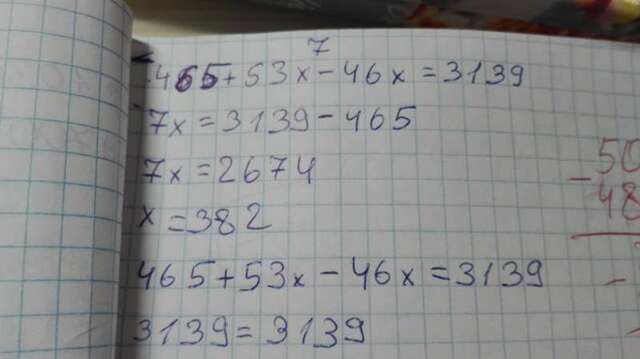 7
465+53x-46x=3139
7x=3139-465
7x=2674
x=382
465+53x-46x=3139
3139=3139
50
-48